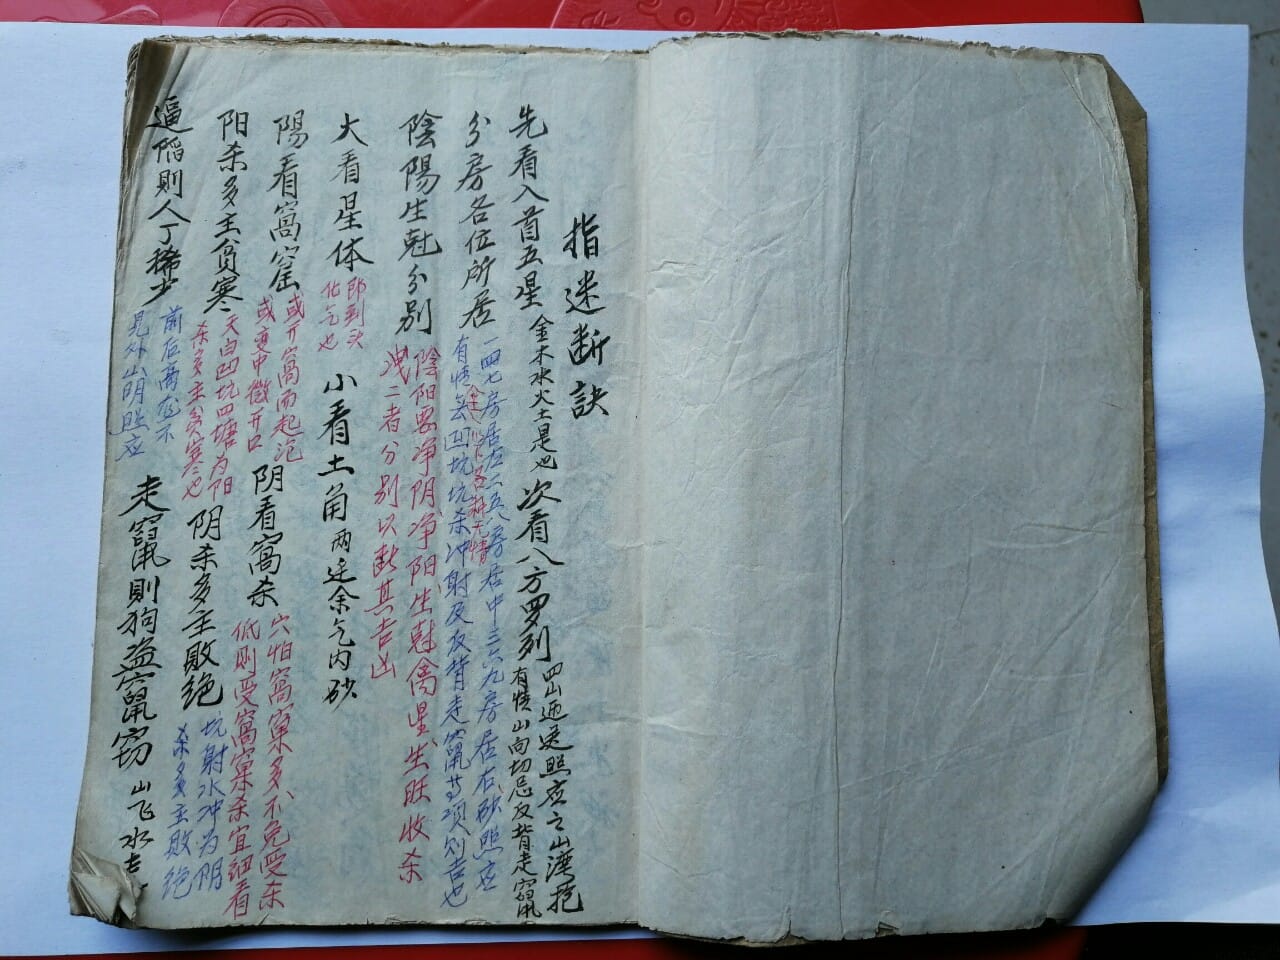 指迷断訣
先看入首五星 金木水火土是也 次看八方罗列 四山迎送照应之山湾抱
有情山向切忌反背走竄
分房各位所居 一四七房居左二五八房居中三六九房居右砂照应
有情無凹坑坑杀冲射反背走竄等項则吉也
陰陽生尅分别 陰阳要净阴净阳生尅禽星生旺收杀
洩二者分别以断其吉凶
大看星体 即到头
化气也 小看土角 两边余气内砂
陽看窩窟 或开窩而起泡
或变中微开口 阴看窩杀 穴怕窩窠多不免受杀
低则受窩窠杀宜细看
阳杀多主貧寒 天白凹坑四塘为阳
杀多主貧寒也 阴杀多主敗绝 坑射水冲为阴
杀多主敗绝
逼陷則人丁稀少 前后高
見外山阴照应 走竄則狗盗鼠窃 山飞水